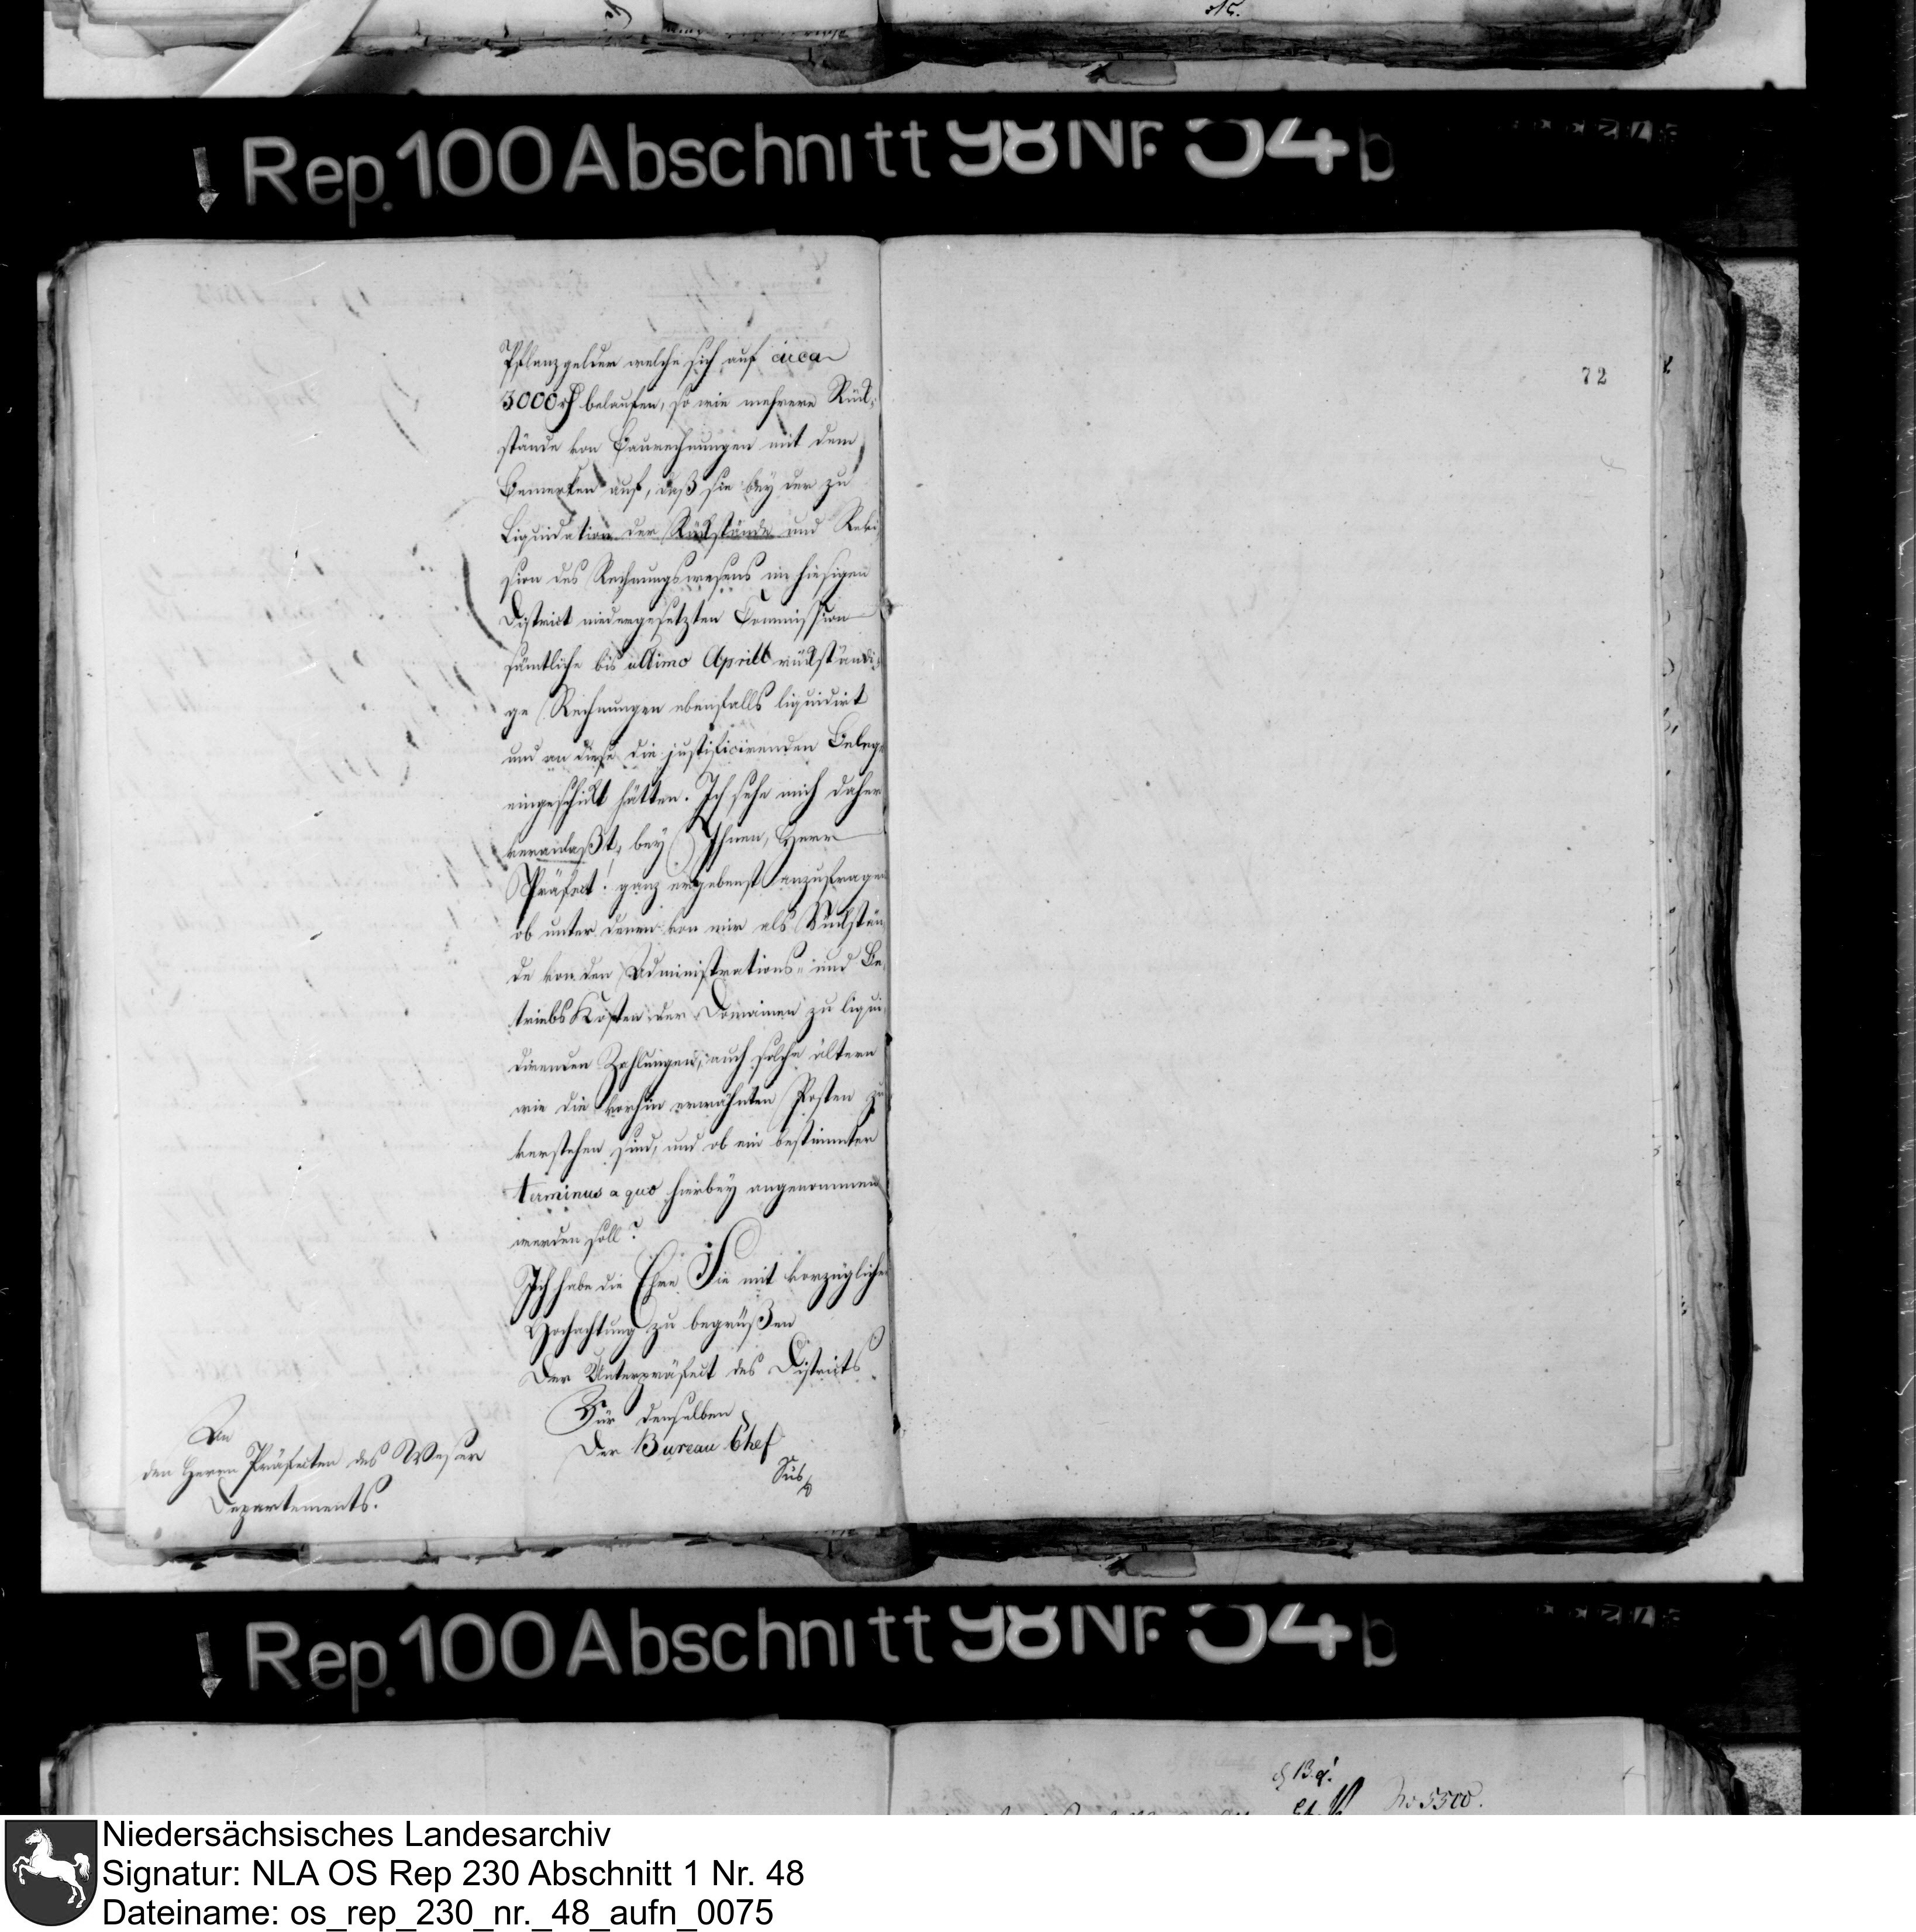 Rep. 100 Abschnitt 98 Nr. 54 b
72
Pflanzgelder welche sich auf circa
3000 rℓ belaufen, so wie mehrere Rück-
stände von Baurechnungen mit dem
Bemerken auf, daß sie bey der zu
Liquidation der Rückstände und Revi
sion des Rechnungswesens im hiesigen
District niedergesetzten Commission
sämtliche bis ultimo Aprill rückständi-
ge Rechnungen ebenfalls liquidirt
und an diese die justificirenden Belege
eingeschickt hätten. Ich sehe mich daher
veranlaßt, bey Ihnen, Herr
Präfect! ganz ergebenst anzufragen
ob unter denen von mir als Rückstän
de von den Administrations- und Be
triebs Kosten der Domainen zu liqui
direnden Zahlungen, auch solche ältern
wie die vorhin erwähnten Posten zu
verstehen sind, und ob ein bestimmter
terminus a quo hierbey angenommen
werden soll?
Ich habe die Ehre Sie mit vorzüglicher
Hochachtung zu begrüßen
Der Unterpräfect des Districts
Für denselben
Der Bureau Chef
An
den Herrn Präfecten des Weser
Departements.
Rep. 100 Abschnitt 98 Nr. 54 b
No 5500.
Niedersächsisches Landesarchiv
Signatur: NLA OS Rep 230 Abschnitt 1 Nr. 48
Dateiname: os_rep_230_nr._48_aufn_0075